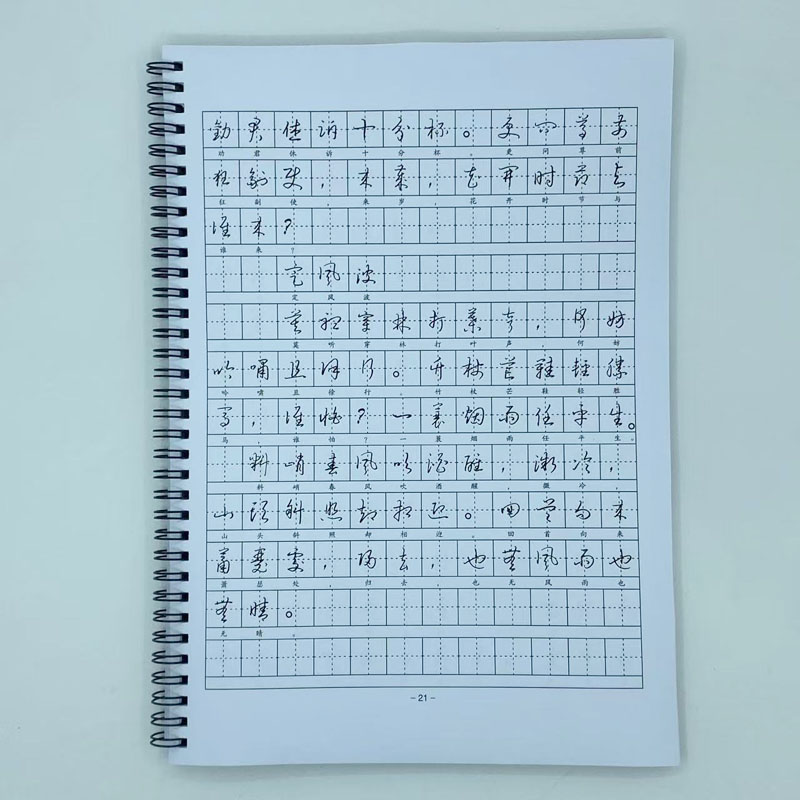 劝君休诉十分杯。更问尊前
劝君休诉十分杯。更问尊前
狂副使，来岁，花开时节与
狂副使，来岁，花开时节与
谁来？
谁来？
定风波
定风波
莫听穿林打叶声，何妨
莫听穿林打叶声，何妨
吟啸且徐行。竹杖芒鞋轻胜
吟啸且徐行。竹杖芒鞋轻胜
马，谁怕？一蓑烟雨任平生。
马，谁怕？一蓑烟雨任平生。
料峭春风吹酒醒，微冷，
料峭春风吹酒醒，微冷，
山头斜照却相迎。回首向来
山头斜照却相迎。回首向来
萧瑟处，归去，也无风雨也
萧瑟处，归去，也无风雨也
无晴。
无晴。
-21-